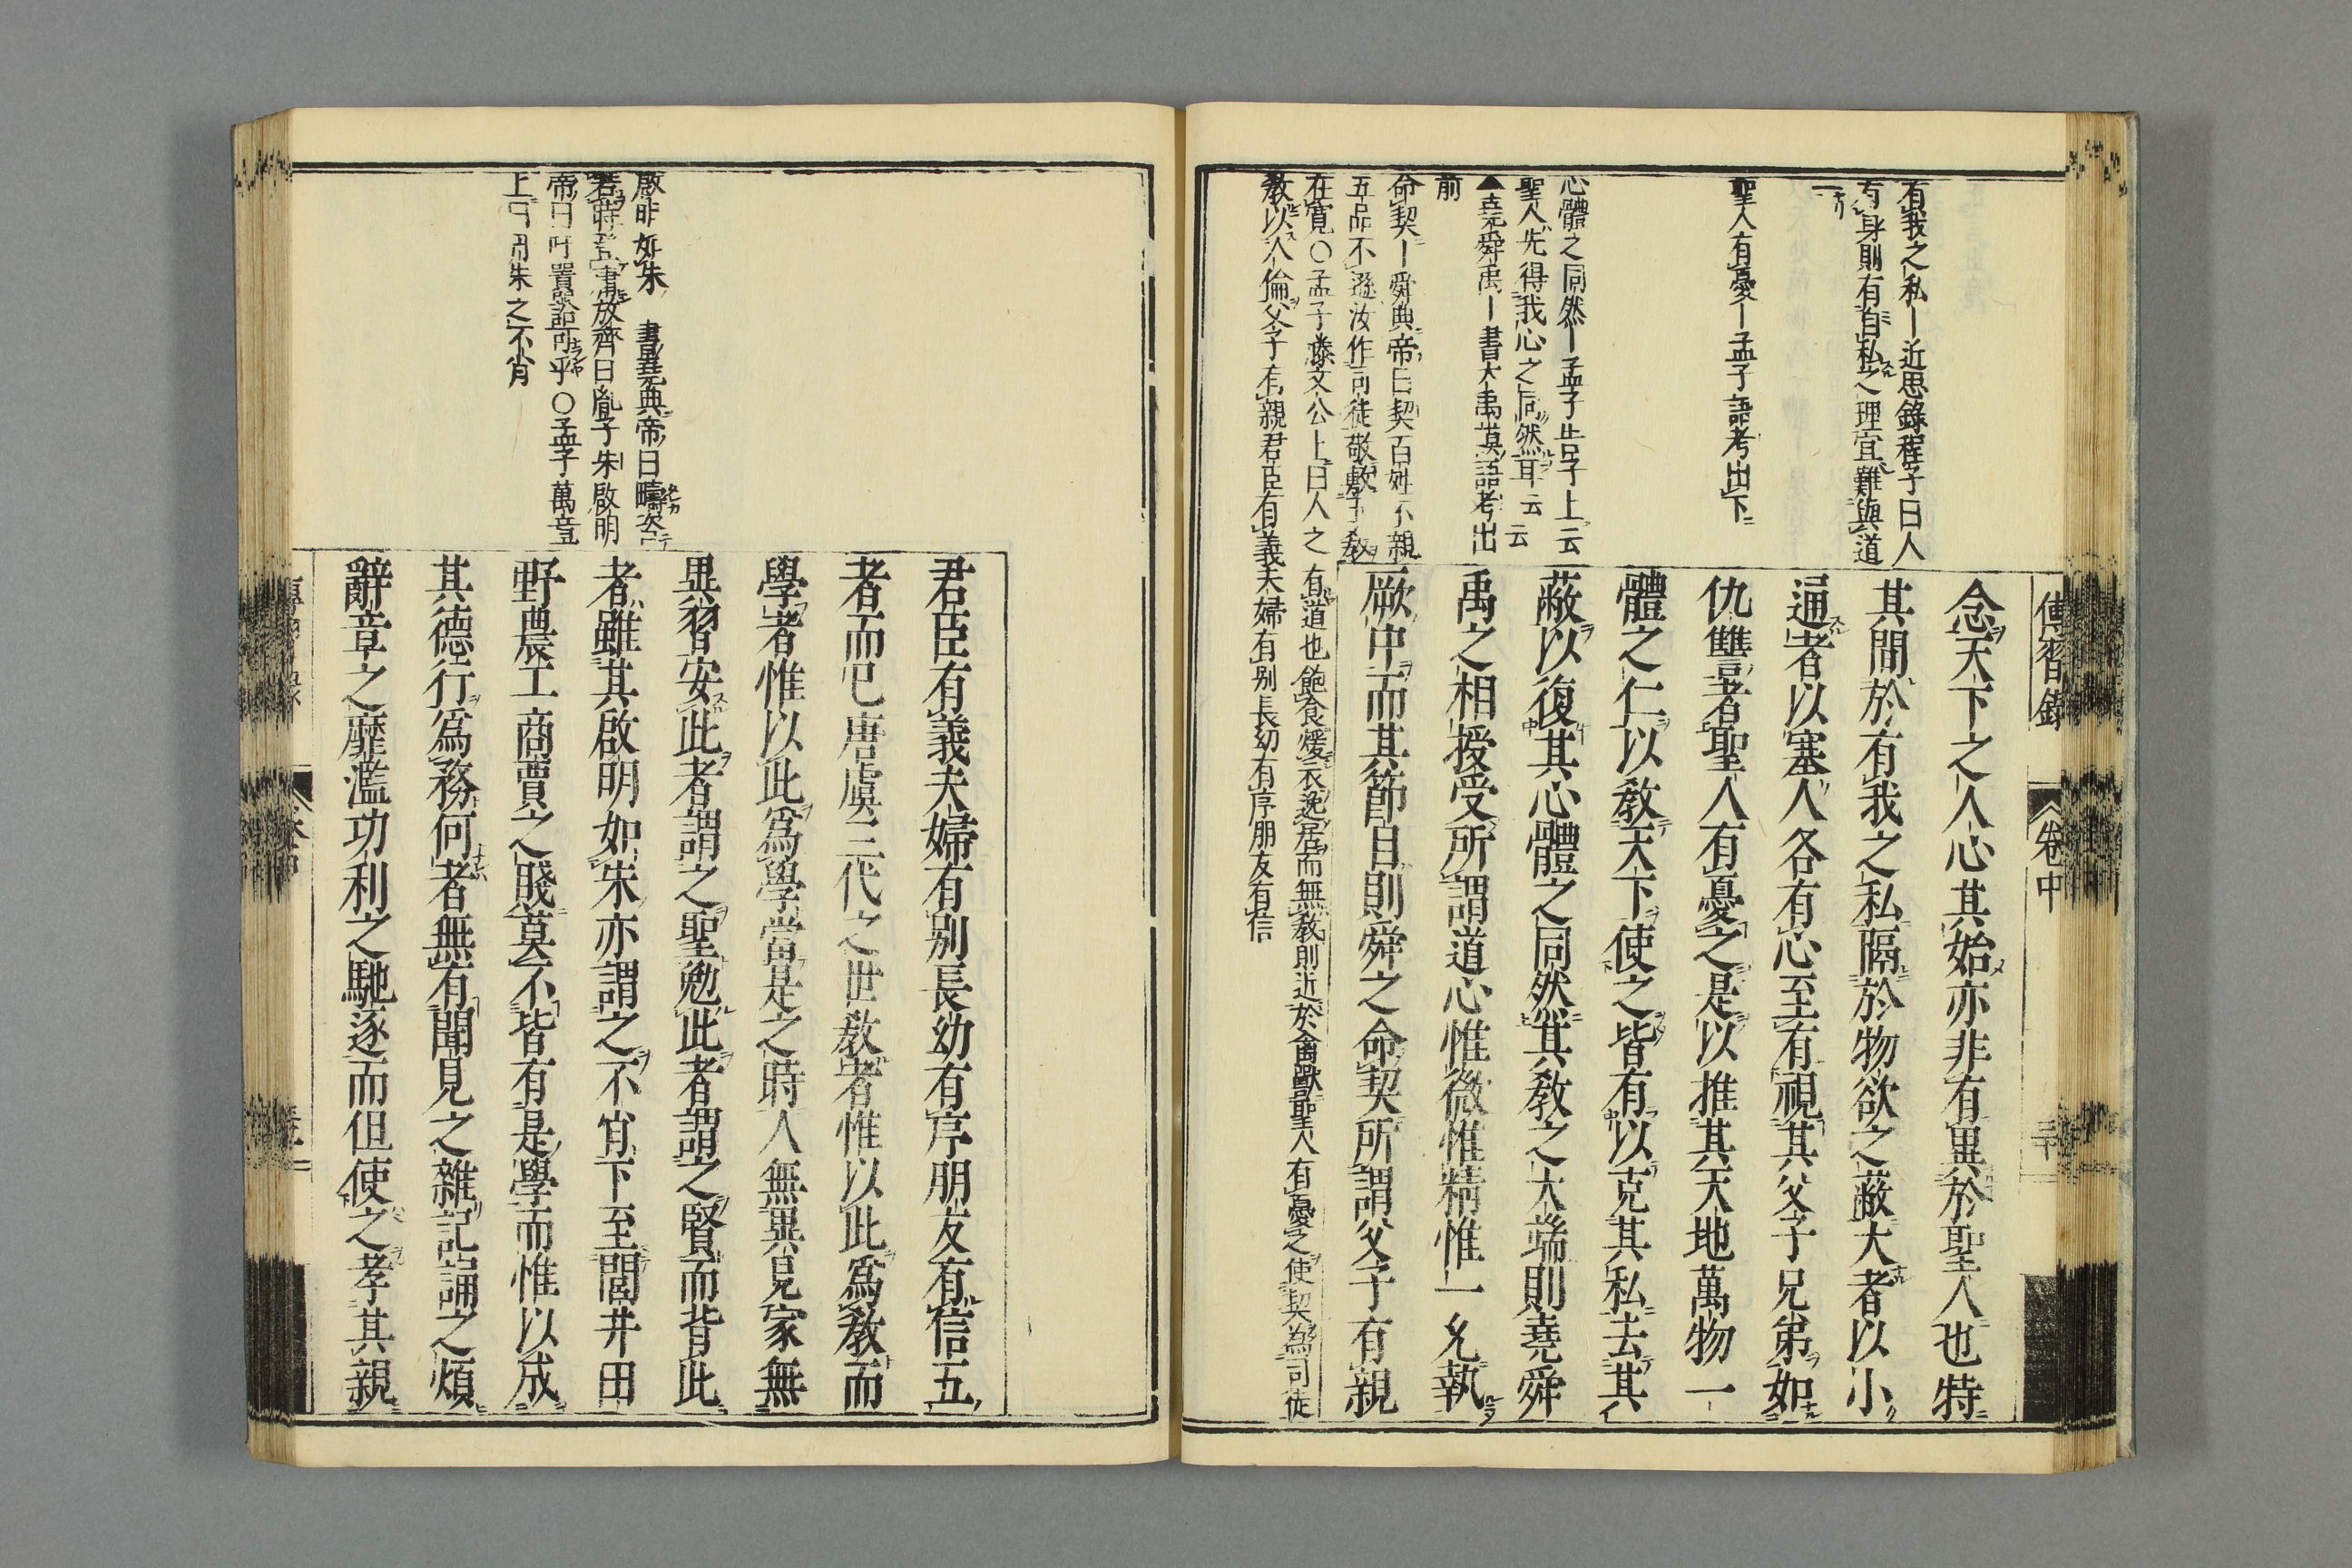 傳習錄
卷中
三十
有我之私ー近思錄程子曰人
有身則有自私之理宜難與道
一
聖人有憂ー孟子語考出下
心體之同然ー孟子告子上云
聖人先得我心之同然耳云云
▲堯舜禹ー書大禹謨語考出
前
命契ー舜典帝曰契百姓不親
五品不遜汝作司徒敬敷五教
在寬○孟子滕文公上曰人之
有道也飽食煖衣逸居而無敎則近於禽獸聖人有憂之使契為司徒
敎以人倫父子有親君臣有義夫婦有別長幼有序朋友有信
念天下之人心其始亦非有異於聖人也特
其間於有我之私隔於物欲之蔽大者以小
通者以塞人各有心至有視其父子兄弟如
仇讐者聖人有憂之是以推其天地萬物一
體之仁以敎天下使之皆有以克其私去其
蔽以復其心體之同然其敎之大端則堯舜
禹之相授受所謂道心惟微惟精惟一允執
厥中而其節目則舜之命契所謂父子有親
啟明如朱 書堯典帝曰疇咨
若時登庸放齊曰胤子朱啟明
帝曰吁嚚訟可乎○孟子萬章
上曰丹朱之不肖
君臣有義夫婦有別長幼有序朋友有信五
者而已唐虞三代之世敎者惟以此爲敎而
學者惟以此爲學當是之時人無異見家無
異習安此者謂之聖勉此者謂之賢而背此
者雖其啟明如朱亦謂之不肖下至閭井田
野農工商賈之賤莫不皆有是學而惟以成
其德行爲務何者無有聞見之雜記誦之煩
辭章之靡濫功利之馳逐而但使之孝其親